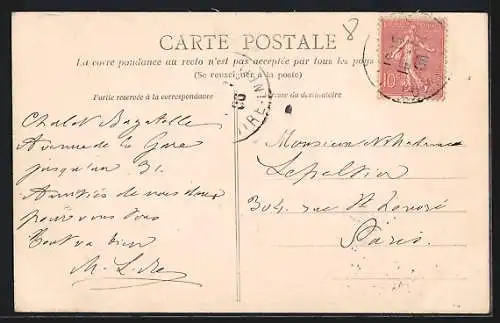 8
CARTE POSTALE
La correspondance au recto n'est pas acceptée par tous les pays
(Se renseigner à la poste)
Partie réservée à la correspondance
Adresse du destinataire
10
Chalet Bagatelle
Avenue de la Gare
jusqu'au 31.
Amitiés de nous deux
pour vous tous
Tout va bien
Monsieur et Madame
Lepeltier
304, rue St Honoré
Paris.